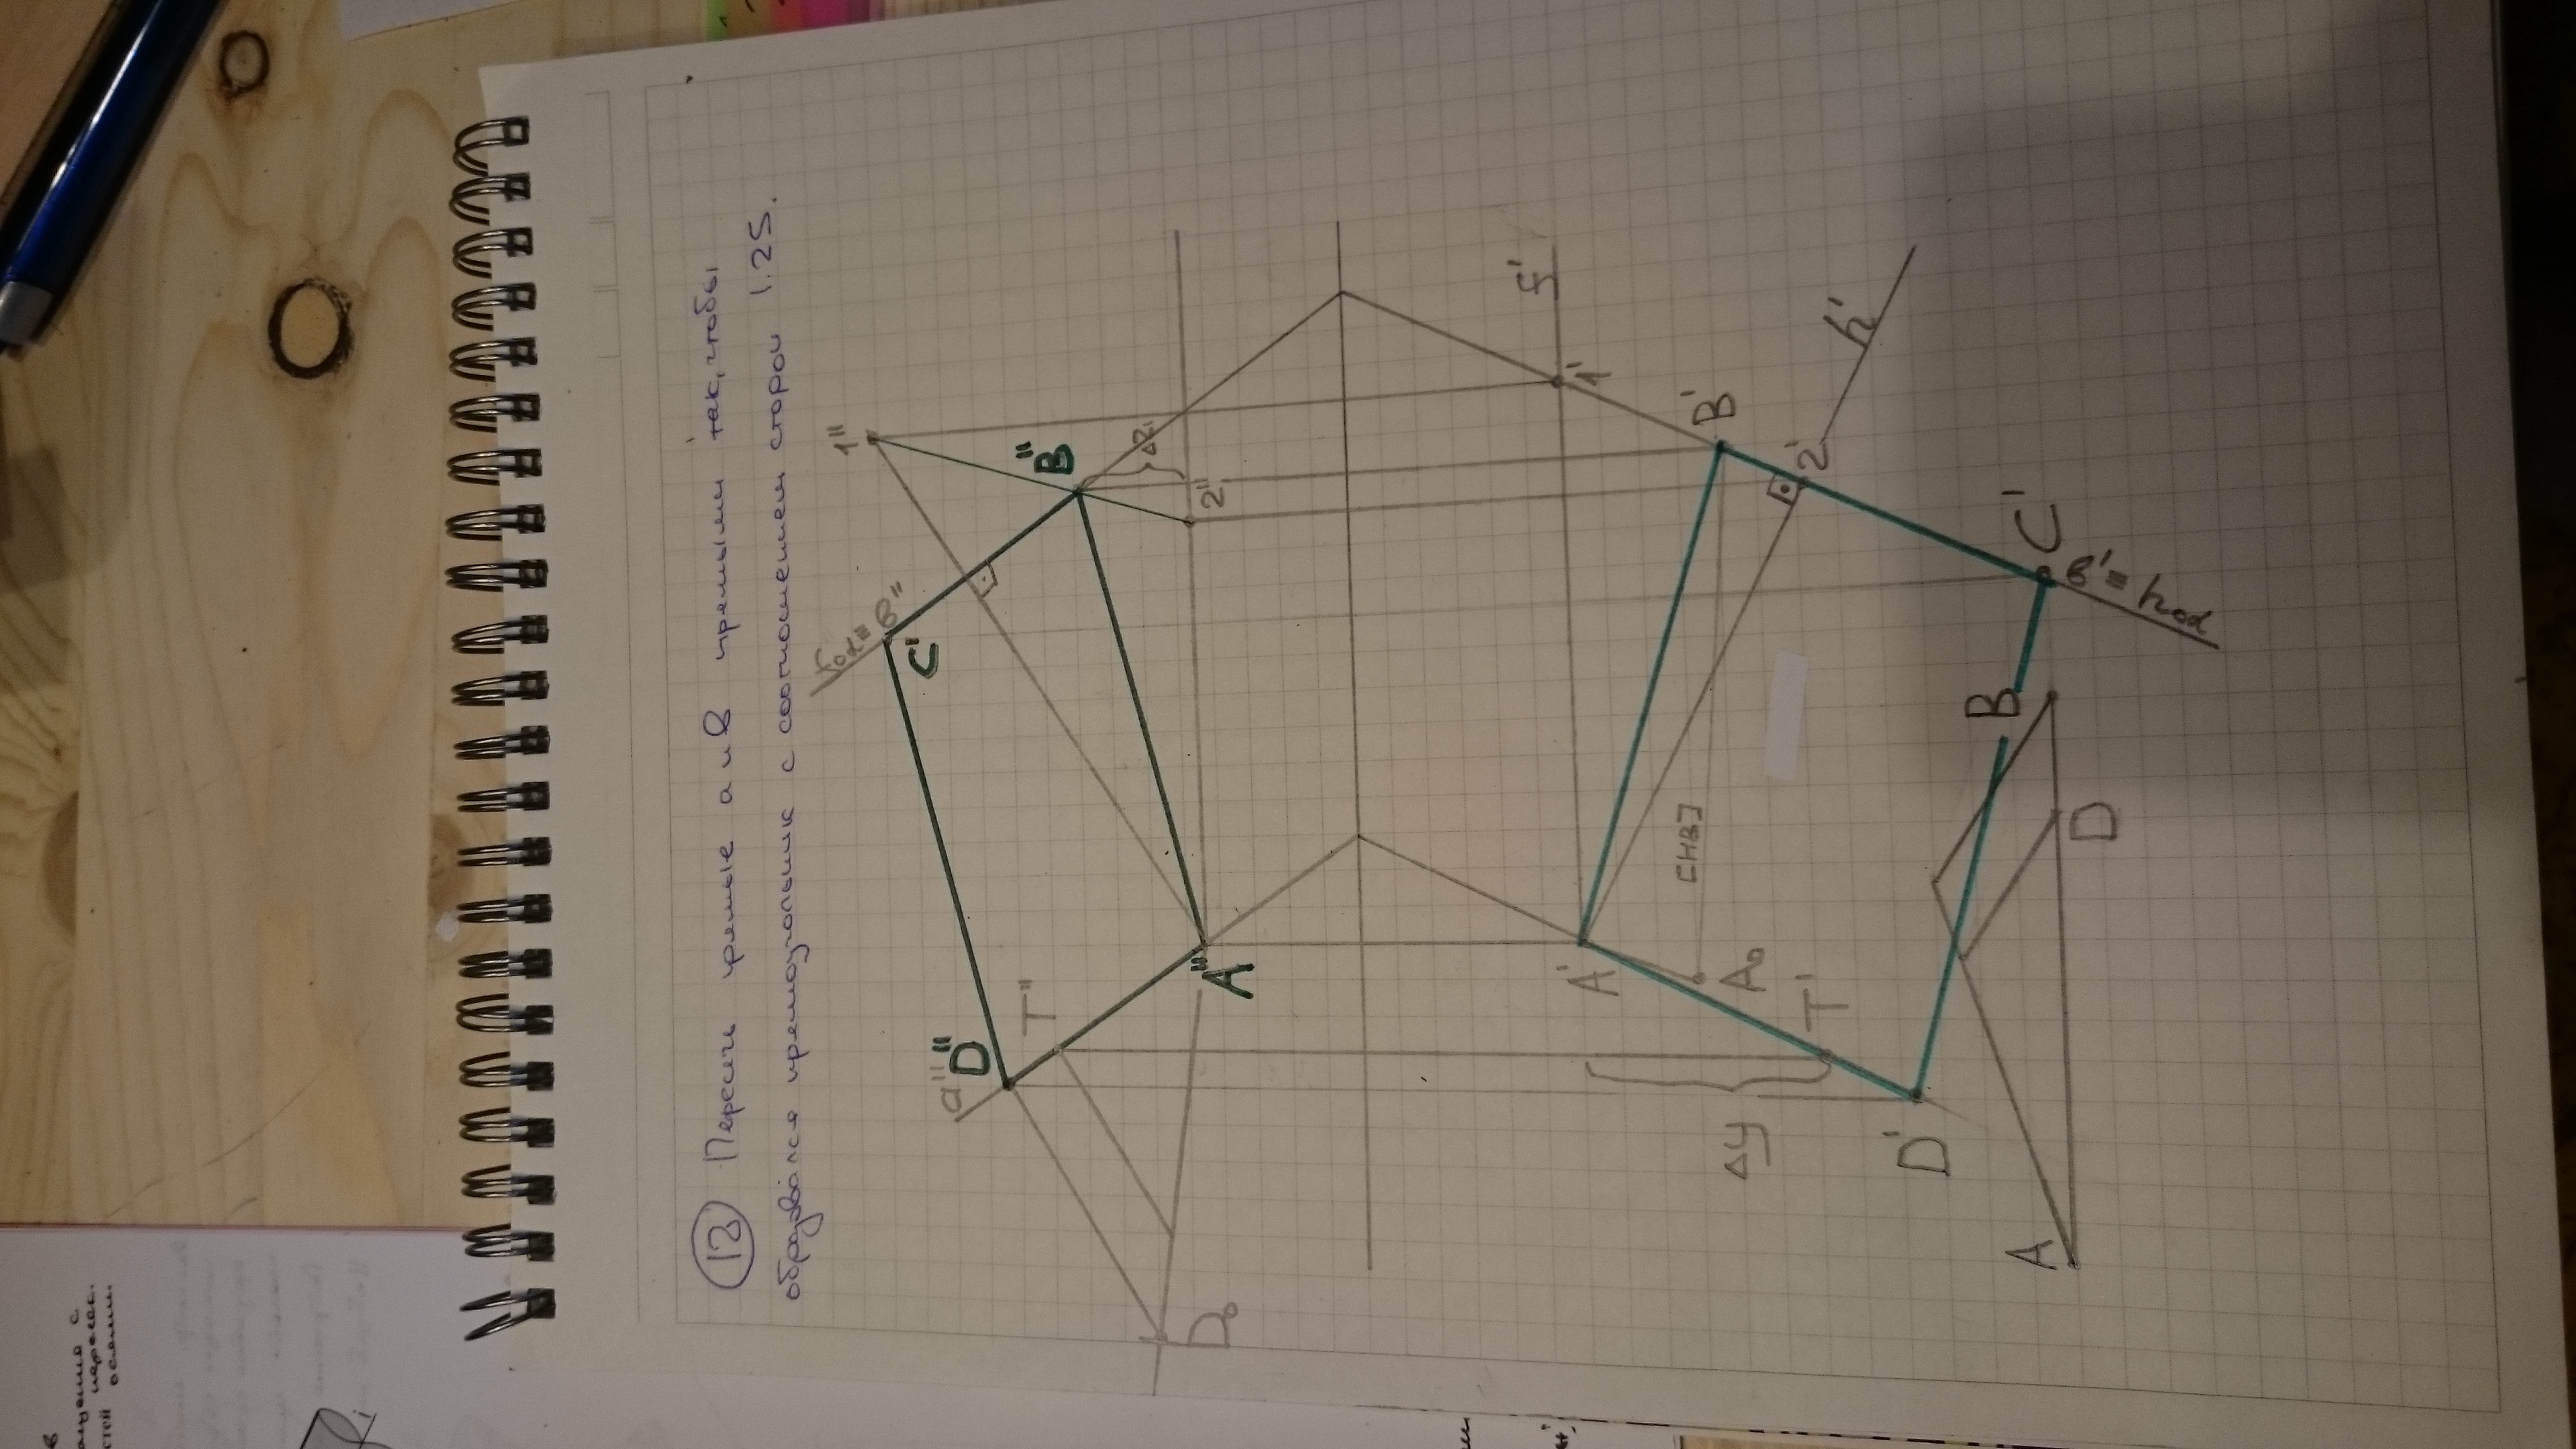 в
ащению с
пересек.
стей осями.
12 Пересечь прямые а и в прямыми так, чтобы
образовался прямоугольник с соотношением сторон 1.25.
1"
f₀α≡в"
C'
a"
D"
T"
B"
Δz
D₀
A"
2"
f'
A'
1'
[HB]
Δy
A₀
B'
T'
2'
h'
D'
A
B
C'
D
в'≡h₀α